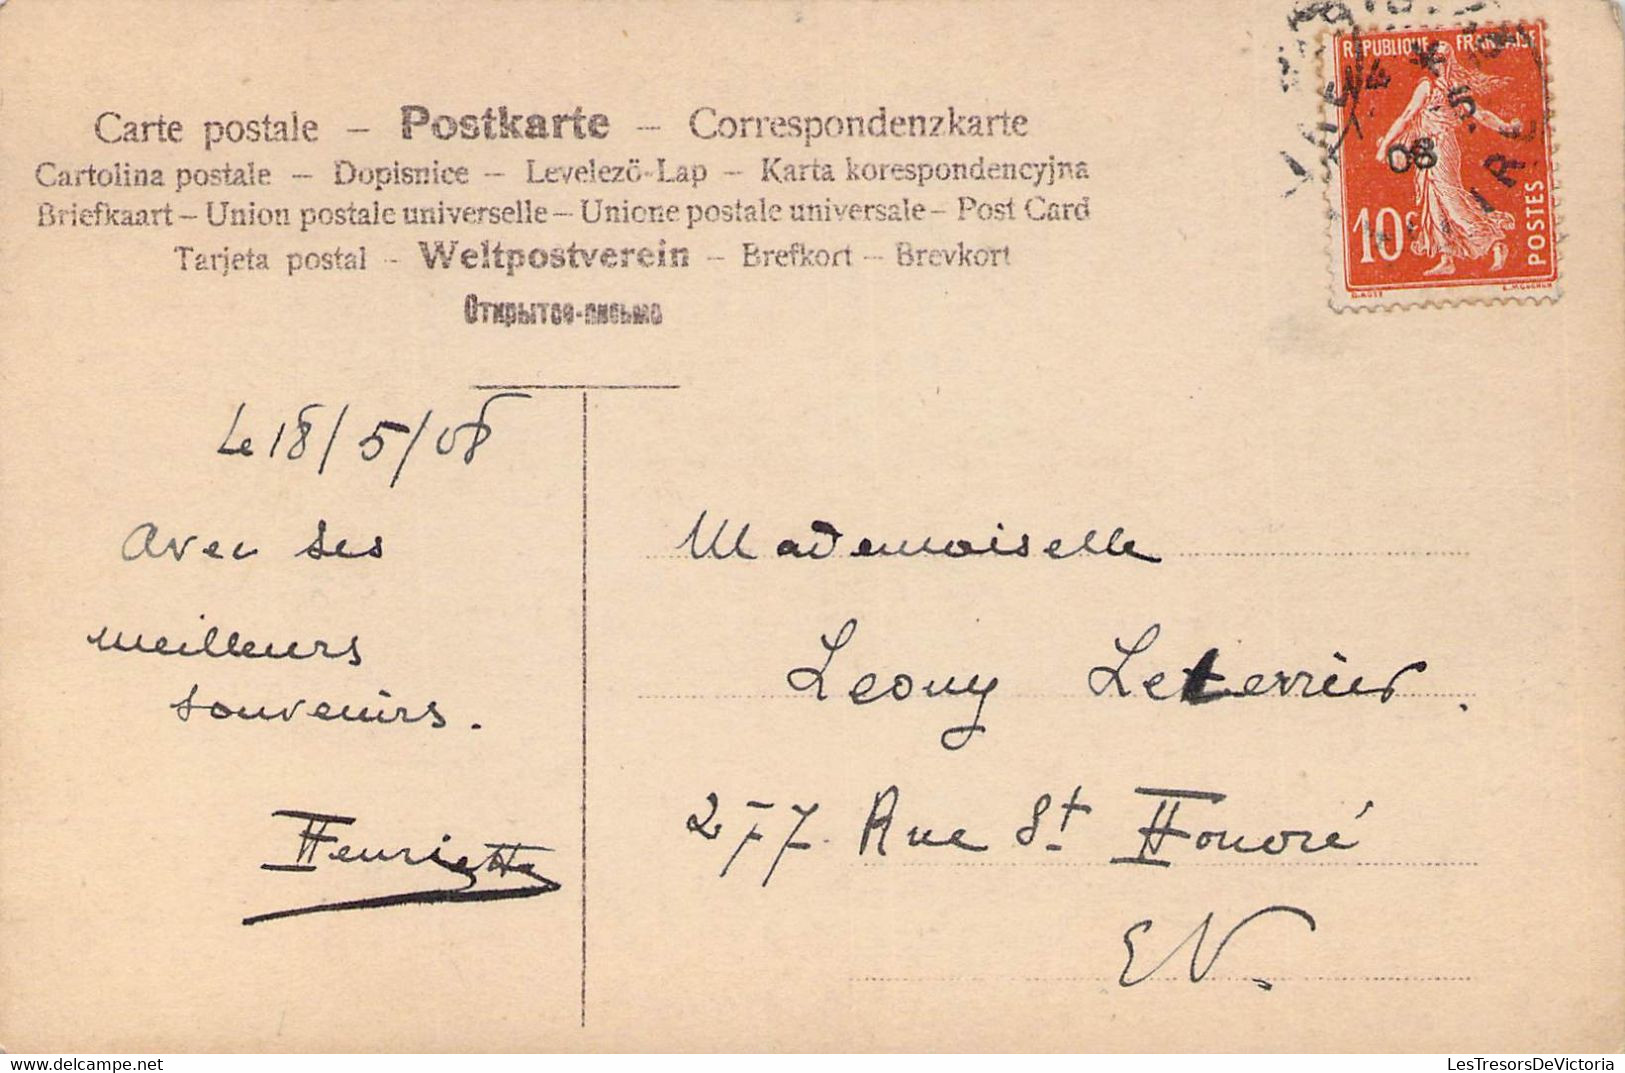 Carte postale – Postkarte – Correspondenzkarte
Cartolina postale – Dopisnice – Levelező-Lap – Karta korespondencyjna
Briefkaart – Union postale universelle – Unione postale universale – Post Card
Tarjeta postal – Weltpostverein – Brefkort – Brevkort
Открытое-письмо
REPUBLIQUE FRANÇAISE
08
10c
POSTES
Le 18/5/08
Avec ses
meilleurs
souvenirs.
Henriette
Mademoiselle
Leony Leterrier.
277 Rue St Honoré
EV.
LesTresorsDeVictoria